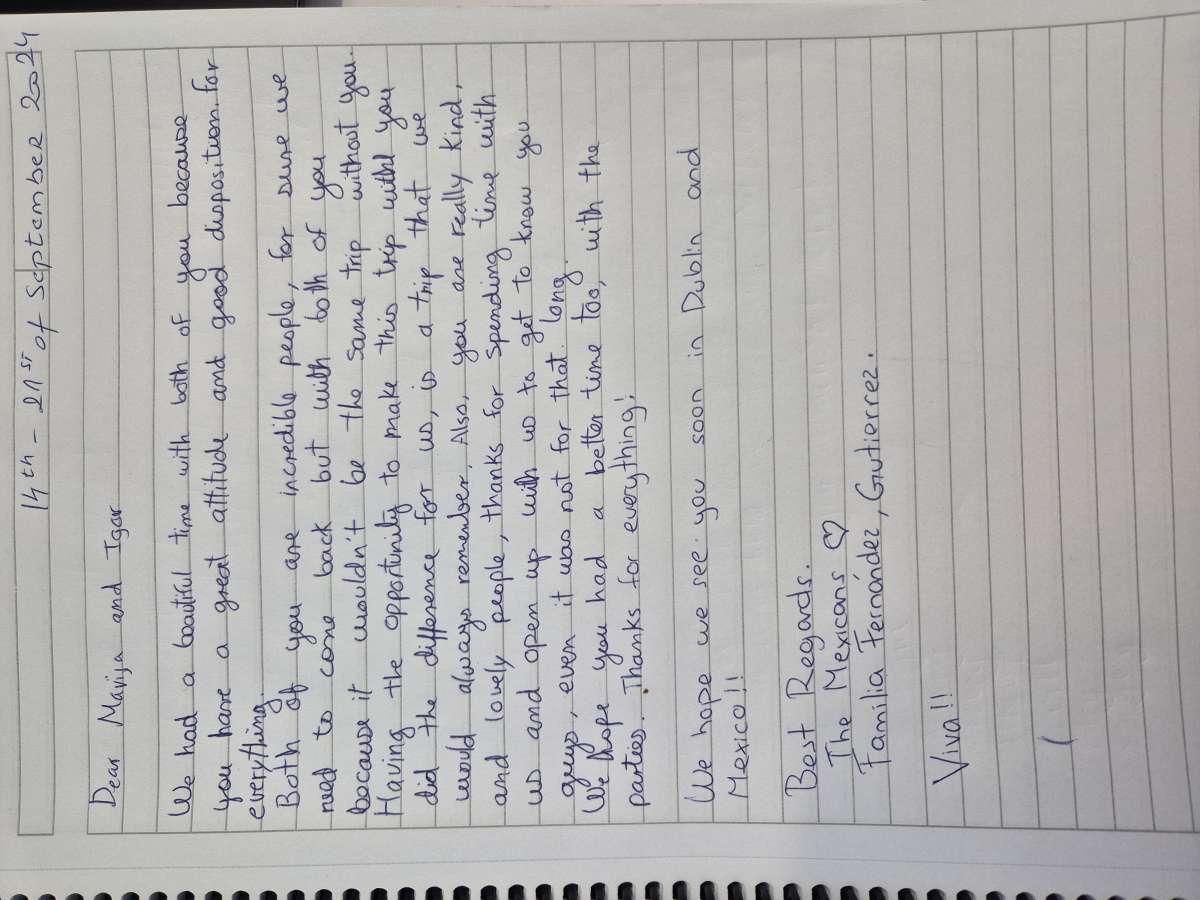 14th - 21ST of September 2024
Dear Marija and Igor
We had a beautiful time with both of you because
you have a great attitude and good disposition for
everything.
Both of you are incredible people, for sure we
need to come back but with both of you
because it wouldn't be the same trip without you.
Having the opportunity to make this trip with you
did the difference for us, is a trip that we
would always remember. Also, you are really kind,
and lovely people, thanks for spending time with
us and open up with us to get to know you
guys, even it was not for that long.
We hope you had a better time too, with the
parties. Thanks for everything!
We hope we see you soon in Dublin and
Mexico!!
Best Regards.
The Mexicans ♡
Familia Fernández, Gutierrez.
Viva!!